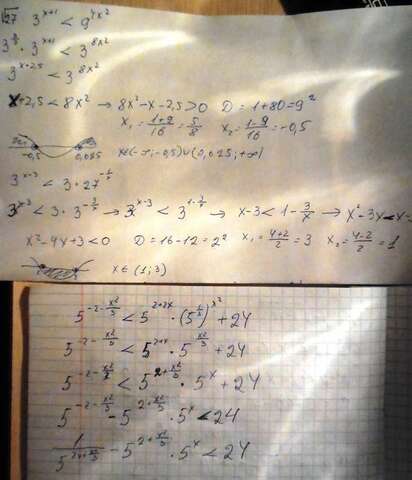 √27 · 3^(x+1) < 9^(4x²)
3^(3/2) · 3^(x+1) < 3^(8x²)
3^(x+2,5) < 3^(8x²)
x+2,5 < 8x² → 8x²-x-2,5>0 D = 1+80=9²
x₁ = (1+9)/16 = 5/8 x₂ = (1-9)/16 = -0,5
-0,5 0,625 x∈(-∞;-0,5)∪(0,625;+∞)
3^(x-3) < 3 · 27^(-1/x)
3^(x-3) < 3 · 3^(-3/x) → 3^(x-3) < 3^(1-3/x) → x-3 < 1-3/x → x²-3x < x-
x²-4x+3<0 D = 16-12 = 2² x₁ = (4+2)/2 = 3 x₂ = (4-2)/2 = 1
x∈(1;3)
5^(-2-x²/3) < 5^(2+2x) · (5^(1/3))^(x²) + 24
5^(-2-x²/3) < 5^(2+x) · 5^(x²/3) + 24
5^(-2-x²/3) < 5^(2+x²/3) · 5^x + 24
5^(-2-x²/3) - 5^(2+x²/3) · 5^x < 24
1/5^(2+x²/3) - 5^(2+x²/3) · 5^x < 24